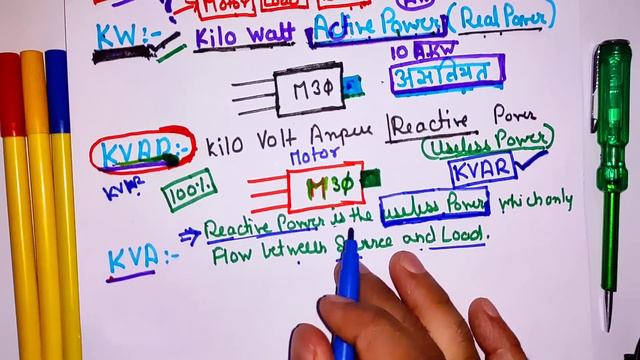 Motor
KW:- Kilo Watt Active Power (Real Power)
10 A.KW
असलियत
M3Φ
KVAR:- Kilo Volt Ampere Reactive Power
(Useless Power)
Motor
KVAR
KVAR
100%
M3Φ
⇒ Reactive Power is the useless Power which only
Flow between Source and Load.
KVA:-